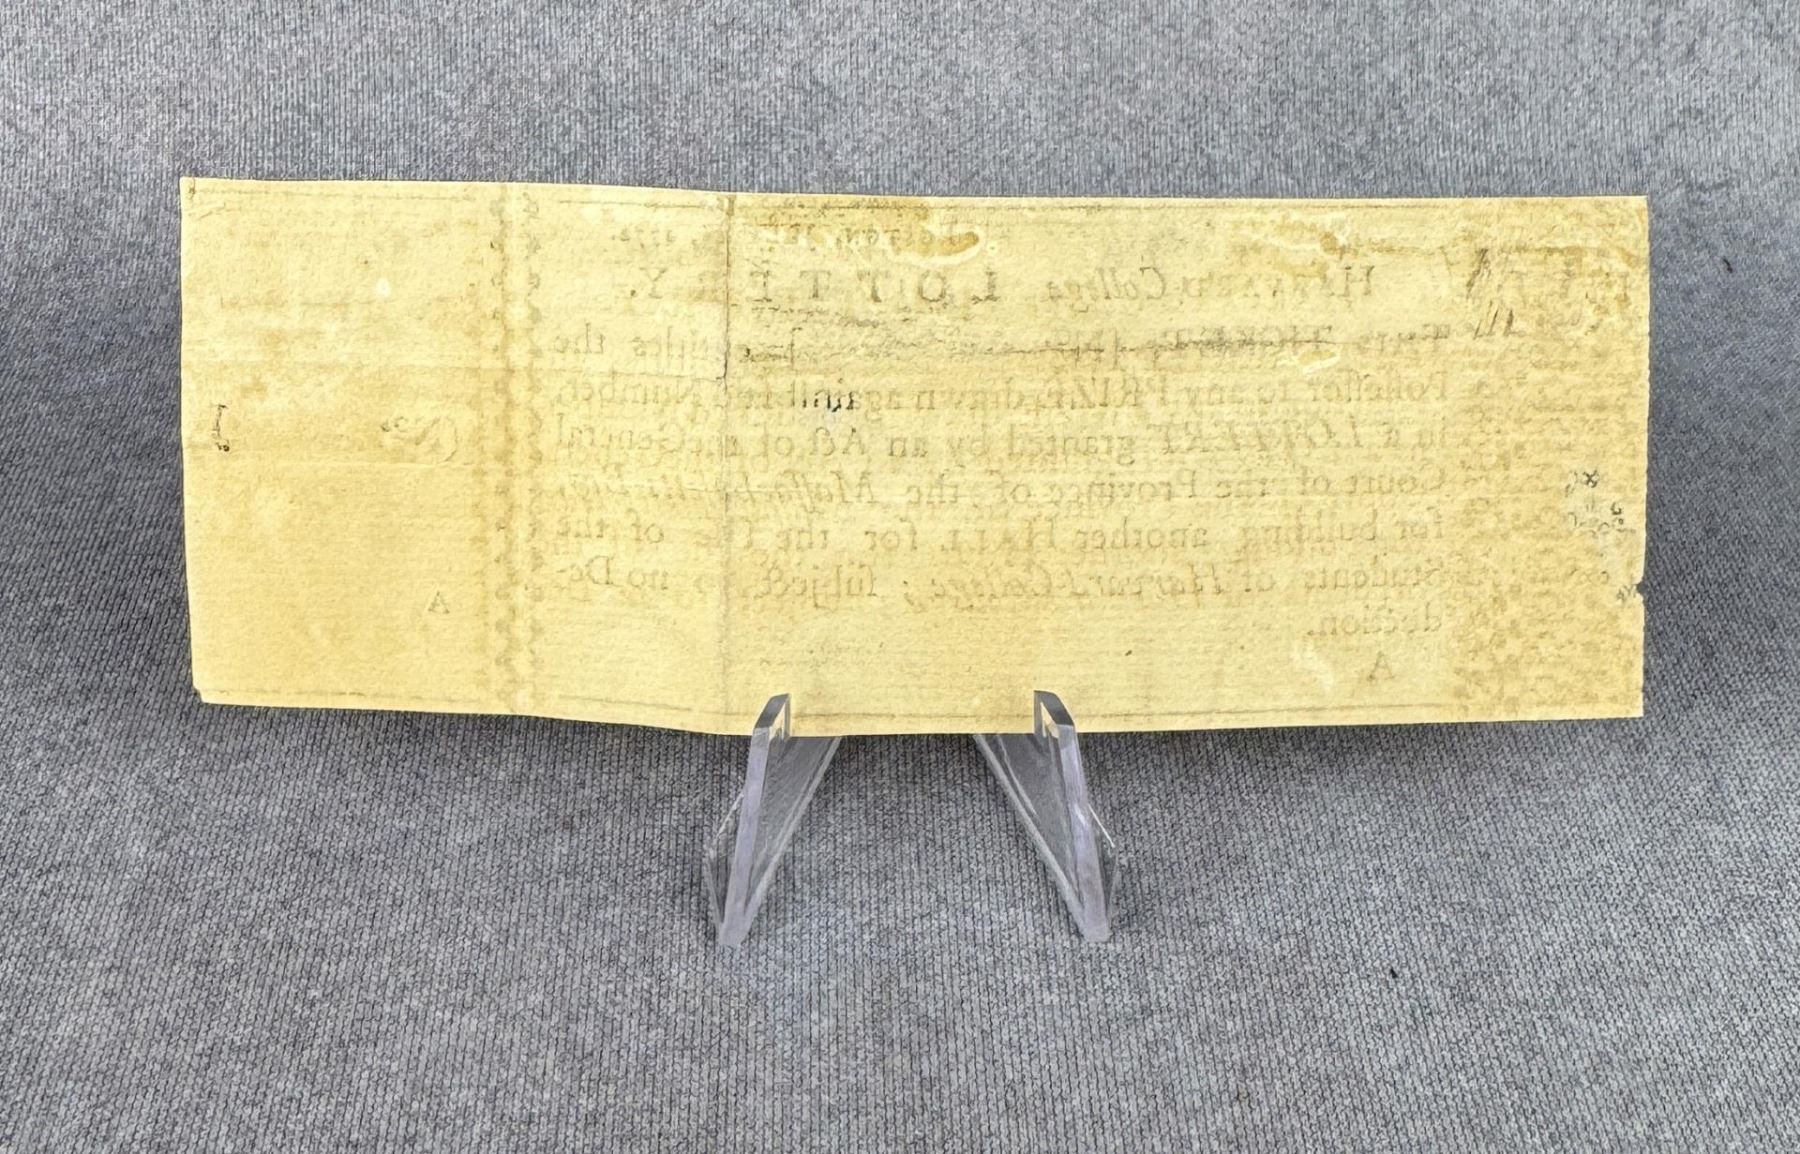 BOSTON, 1772.
HARVARD College LOTTERY.
THIS TICKET, [No. ] entitles the
Possessor to any PRIZE drawn against said Number,
in a LOTTERY granted by an Act of the General
Court of the Province of the Massachusetts-Bay,
for building another HALL for the Use of the
Students of Harvard-College; subject to no De-
duction.
A
(No.
A